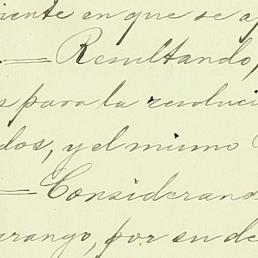 iente en que se a
= Resultando,
s para la resoluci
dos, y el mismo
= Considerand
urango, por su de